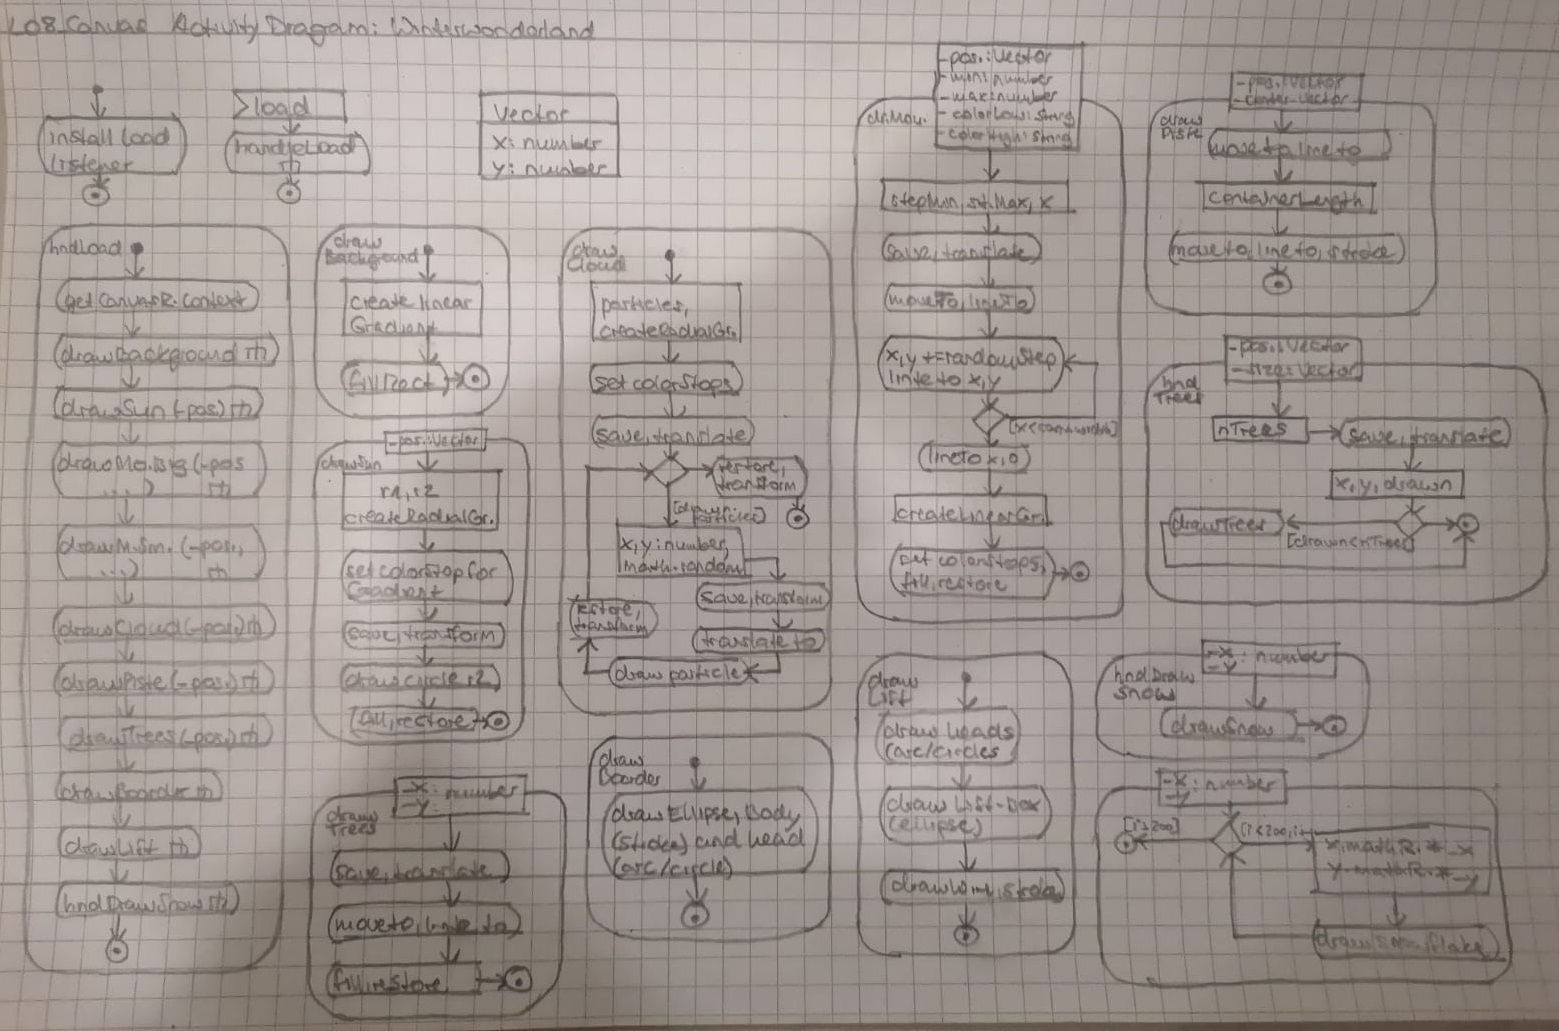 L08 Canvas Activity Diagram: Winterwonderland
install load
listener
load
handleLoad
Vector
x: number
y: number
hndLoad
getCanvasR.Context
drawBackground
drawSun(-pos)
drawMo.Big(-pos
...)
drawM.Sm.(-pos.,
...)
drawCloud(-pos.)
drawPiste(-pos.)
drawTrees(-pos)
drawBoarder
drawLift
hndDrawSnow
draw
Background
create linear
Gradient
fillRect
-pos.:Vector
drawSun
r1, r2
createRadialGr.
set colorStop for
Gradient
save, transform
draw circle r2
fill, restore
-x: number
-y:
draw
Trees
save, translate
moveto, line to
fill, restore
draw
Cloud
particles,
createRadialGr.
set colorStops
save, translate
restore,
transform
particles]
x,y: number,
math.random
save, transform
translate to
draw particle
restore,
transform
draw
Boarder
draw Ellipse, Body
(stroke) and head
(arc/circle)
-pos.:Vector
-min:number
-max:number
-colorLow: string
-colorHigh: string
dr.Mou.
stepMin, st.Max, x
save, translate
moveTo, lineTo
x,y += randomStep
line to x,y
lineTo x,0
createLinearGr.
set colorStops,
fill, restore
draw
Lift
draw heads
(arc/circles
draw Lift-Box
(ellipse)
draw Line, stroke
-pos.: Vector
draw
Piste
move to, line to
containerLength
move to, line to, stroke
-pos.: Vector
-size: Vector
hnd
Trees
nTrees
save, translate
x, y, drawn
drawTrees
[drawn<nTrees]
-x: number
-y
hndDraw
Snow
drawSnow
-x: number
-y
[i>200]
[i<200,
x:mathR.*-x
y:mathR.*-y